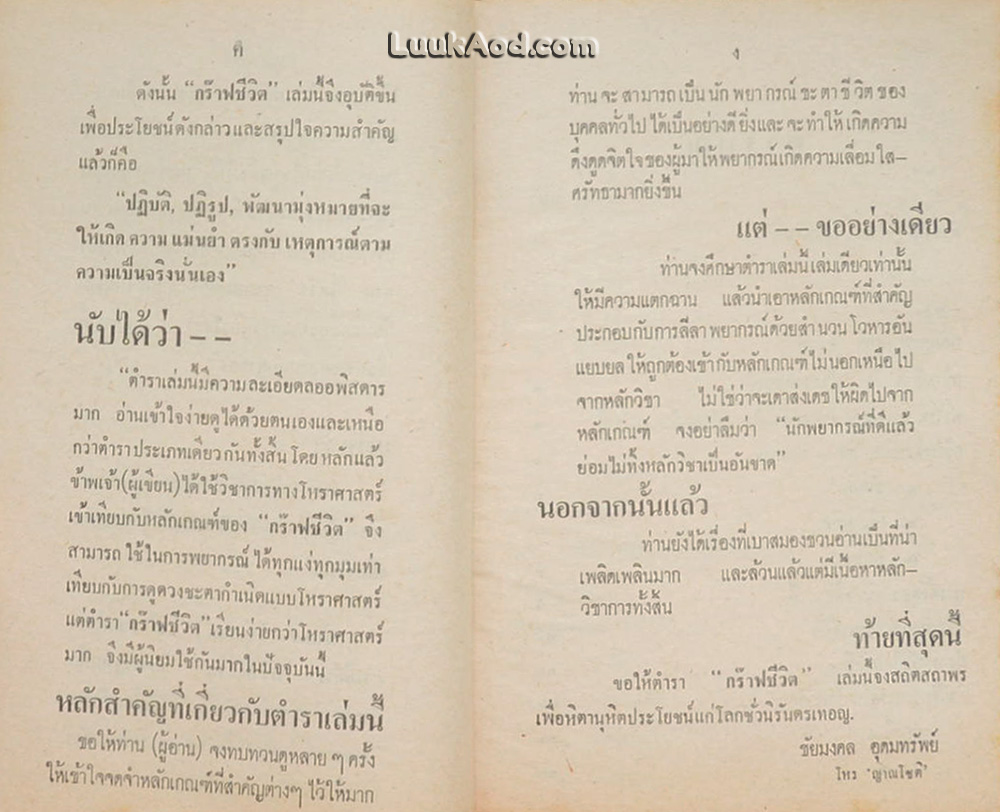 LuukAod.com
ค
ดังนั้น “กร๊าฟชีวิต” เล่มนี้จึงอุบัติขึ้น
เพื่อประโยชน์ดังกล่าวและสรุปใจความสำคัญ
แล้วก็คือ
“ปฏิบัติ, ปฏิรูป, พัฒนามุ่งหมายที่จะ
ให้เกิด ความ แม่นยำ ตรงกับ เหตุการณ์ตาม
ความเป็นจริงนั่นเอง”
นับได้ว่า - -
“ตำราเล่มนี้มีความละเอียดลออพิสดาร
มาก อ่านเข้าใจง่ายดูได้ด้วยตนเองและเหนือ
กว่าตำราประเภทเดียวกันทั้งสิ้น โดยหลักแล้ว
ข้าพเจ้า(ผู้เขียน)ได้ใช้วิชาการทางโหราศาสตร์
เข้าเทียบกับหลักเกณฑ์ของ “กร๊าฟชีวิต” จึง
สามารถ ใช้ในการพยากรณ์ ได้ทุกแง่ทุกมุมเท่า
เทียบกับการดูดวงชะตากำเนิดแบบโหราศาสตร์
แต่ตำรา“กร๊าฟชีวิต”เรียนง่ายกว่าโหราศาสตร์
มาก จึงมีผู้นิยมใช้กันมากในปัจจุบันนี้
หลักสำคัญที่เกี่ยวกับตำราเล่มนี้
ขอให้ท่าน (ผู้อ่าน) จงทบทวนดูหลาย ๆ ครั้ง
ให้เข้าใจจดจำหลักเกณฑ์ที่สำคัญต่างๆ ไว้ให้มาก
ง
ท่าน จะ สามารถ เป็น นัก พยา กรณ์ ชะ ตา ชี วิต ของ
บุคคลทั่วไป ได้เป็นอย่างดี ยิ่งและ จะ ทำให้ เกิดความ
ดึงดูดจิตใจ ของผู้มาให้พยากรณ์เกิดความเลื่อม ใส-
ศรัทธามากยิ่งขึ้น
แต่ - - ขออย่างเดียว
ท่านจงศึกษาตำราเล่มนี้ เล่มเดียวเท่านั้น
ให้มีความแตกฉาน แล้วนำเอาหลักเกณฑ์ที่สำคัญ
ประกอบกับการลีลา พยากรณ์ด้วยสำ นวน โวหารอัน
แยบยล ให้ถูกต้องเข้า กับหลักเกณฑ์ ไม่นอกเหนือ ไป
จากหลักวิชา ไม่ใช่ว่าจะเดาส่งเดช ให้ผิดไปจาก
หลักเกณฑ์ จงอย่าลืมว่า “นักพยากรณ์ที่ดีแล้ว
ย่อมไม่ทิ้งหลักวิชาเป็นอันขาด”
นอกจากนั้นแล้ว
ท่านยังได้เรื่องที่เบาสมองชวนอ่านเป็นที่น่า
เพลิดเพลินมาก และล้วนแล้วแต่มีเนื้อหาหลัก-
วิชาการทั้งสิ้น
ท้ายที่สุดนี้
ขอให้ตำรา “กร๊าฟชีวิต” เล่มนี้จงสถิตสถาพร
เพื่อหิตานุหิตประโยชน์แก่โลกชั่วนิรันดรเทอญ.
ชัยมงคล อุดมทรัพย์
โหร ‘ญาณโชติ’